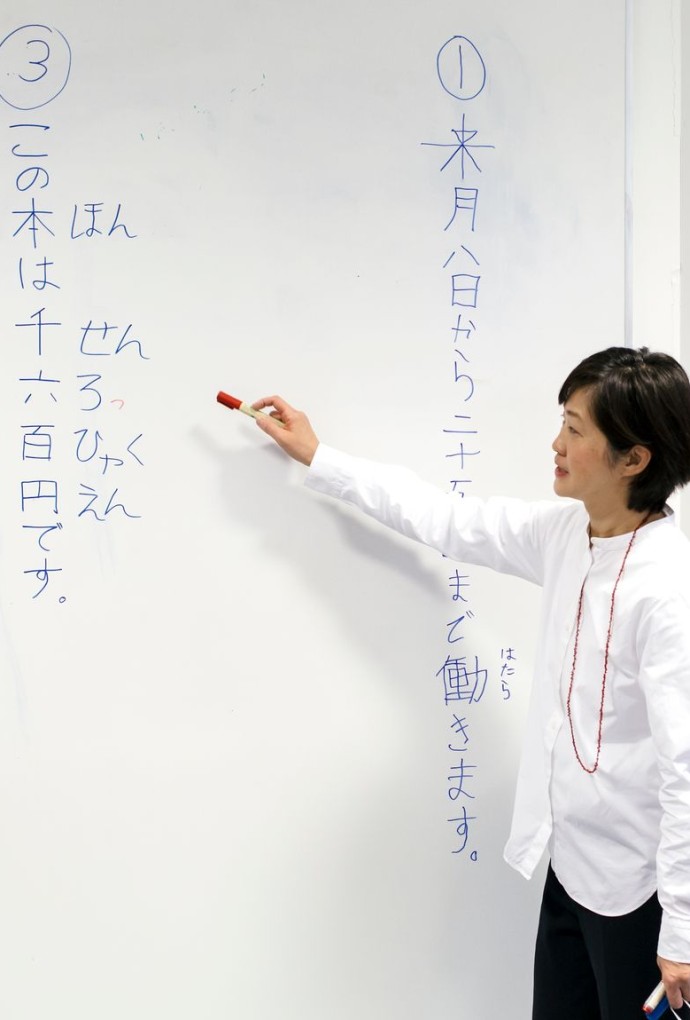 ①来月八日から二十 まで働きます。
はたら
③この本は千六百円です。
ほん せん ろっ ひゃく えん